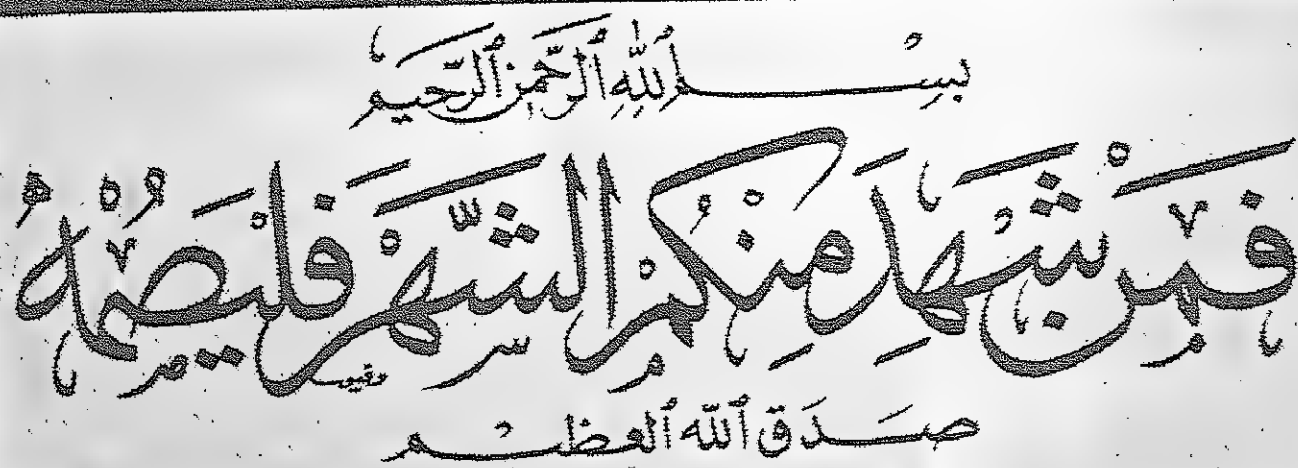 بِسْمِ ٱللَّهِ ٱلرَّحْمَٰنِ ٱلرَّحِيمِ
فَمَنْ شَهِدَ مِنْكُمُ الشَّهْرَ فَلْيَصُمْهُ
صَدَقَ ٱللَّهُ ٱلْعَظِيم